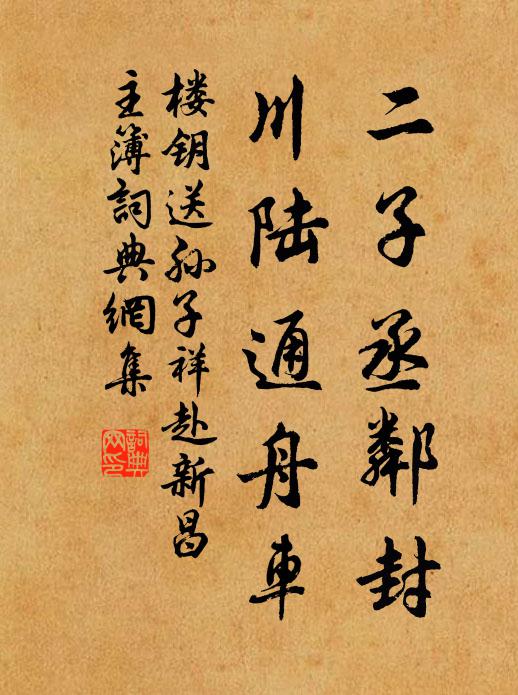 二子丞鄰封
川陆通舟車
楼钥送孙子祥赴新昌
主簿詞典網集
詞典
网印